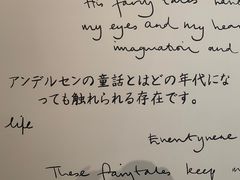 His fairy tales have
my eyes and my hear
imagination and
アンデルセンの童話とはどの年代にな
っても触れられる存在です。
life
Eventyrene
These fairytales keep